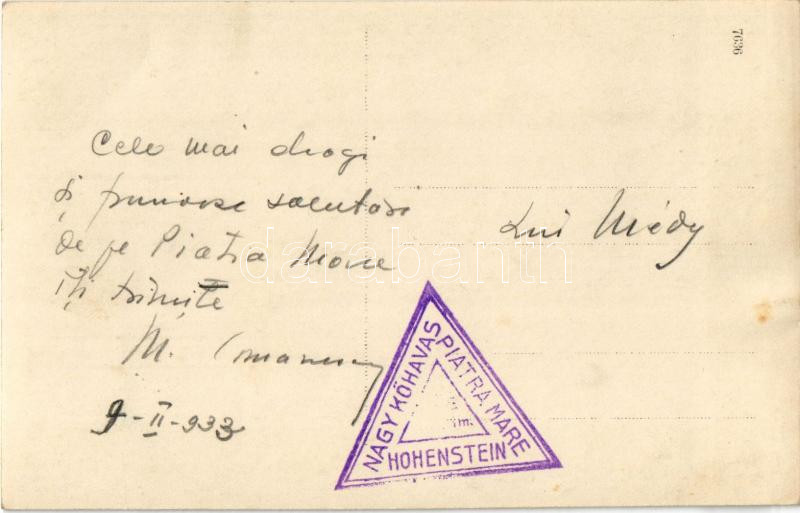 7036
Cele mai dragi
și frumoase salutări
de pe Piatra Mare
îți trimite
M.
9-II-933
Lui Médy
NAGY KŐHAVAS
PIATRA MARE
HOHENSTEIN
m.
darabanth